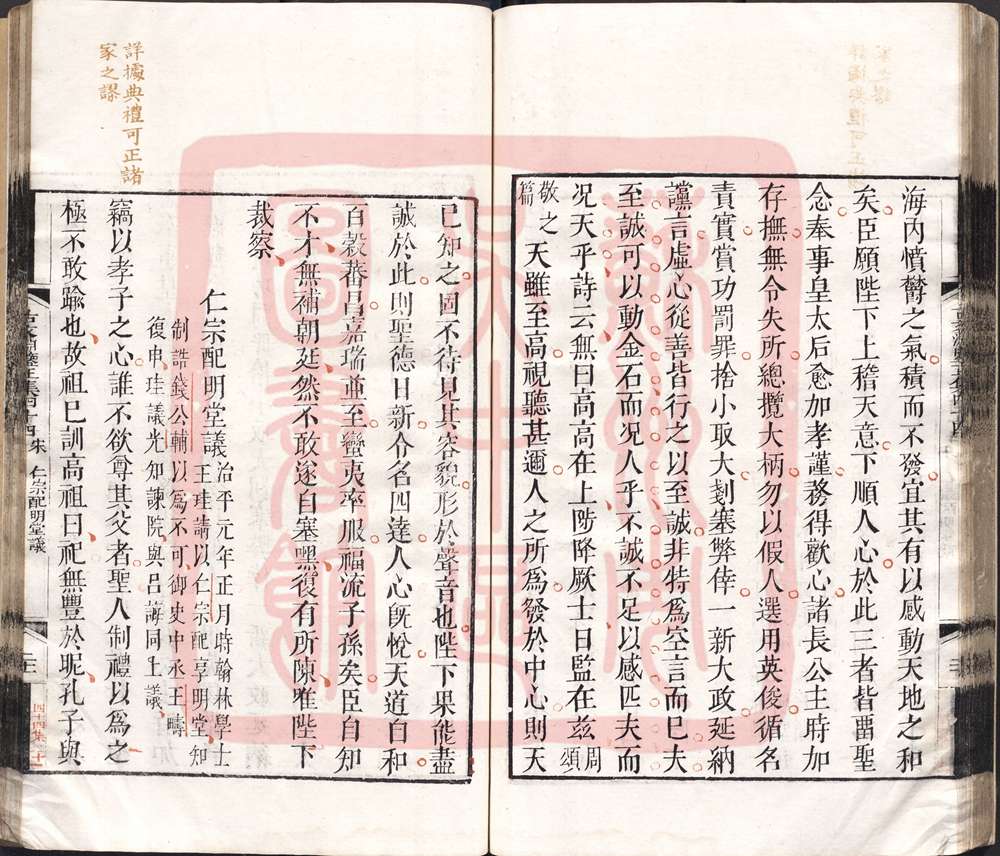 海內憤鬱之氣積而不發宜其有以感動天地之和
矣臣願陛下上稽天意下順人心於此三者皆留聖
念奉事皇太后愈加孝謹務得歡心諸長公主時加
存撫無令失所總攬大柄勿以假人選用英俊循名
責實賞功罰罪捨小取大剗塞弊倖一新大政延納
讜言虛心從善皆行之以至誠非特為空言而巳夫
至誠可以動金石而況人乎不誠不足以感匹夫而
況天乎詩云無曰高高在上陟降厥士日監在茲周頌
敬之篇天雖至高視聽甚邇人之所為發於中心則天
已知之固不待見其容貌形於聲音也陛下果能盡
誠於此則聖德日新令名四達人心旣悅天道自和
百穀蕃昌嘉瑞並至蠻夷率服福流子孫矣臣自知
不才無補朝廷然不敢遂自塞嘿復有所陳惟陛下
裁察
仁宗配明堂議治平元年正月時翰林學士
王珪請以仁宗配享明堂知
制誥錢公輔以為不可御史中丞王疇
復申珪議光知諫院與呂誨同上議
竊以孝子之心誰不欲尊其父者聖人制禮以為之
極不敢踰也故祖巳訓高祖曰祀無豐於昵孔子與
詳據典禮可正諸
家之謬
仁宗配明堂議